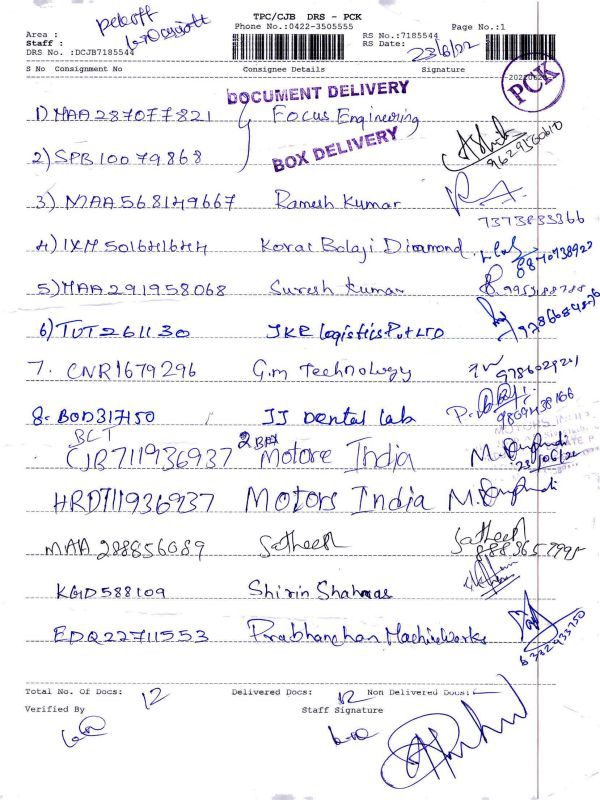 TPC/CJB DRS - PCK
Phone No.:0422-3505555 Page No.:1
Area :
Staff :
DRS No. :DCJB7185544
RS No.:7185544
RS Date: 23/6/22
S No Consignment No Consignee Details Signature
PCK
DOCUMENT DELIVERY
1) MAA287077821 Focus Engineering
BOX DELIVERY
2) SPB10079868 9629560610
3) MAA568149667 Ramesh Kumar
7373833366
4) IXM501641644 Kovai Balaji Diamond
8840738920
5) MAA291958068 Suresh Kumar
6) TUT261130 JKR logistics Pvt LTD
7. CNR1679296 G.m Technology
8. BOD317150 JJ Dental lab
BCT
CJB711936937 2 BOX Motors India
23/06/22
HRD711936937 Motors India
MAA 288856089 Satheesh Satheesh
KGD588109 Shirin Shahnas
EDQ22711553 Prabhanchan Machineworks
6332933750
Total No. Of Docs: 12 Delivered Docs: 12 Non Delivered Docs:
Verified By Staff Signature